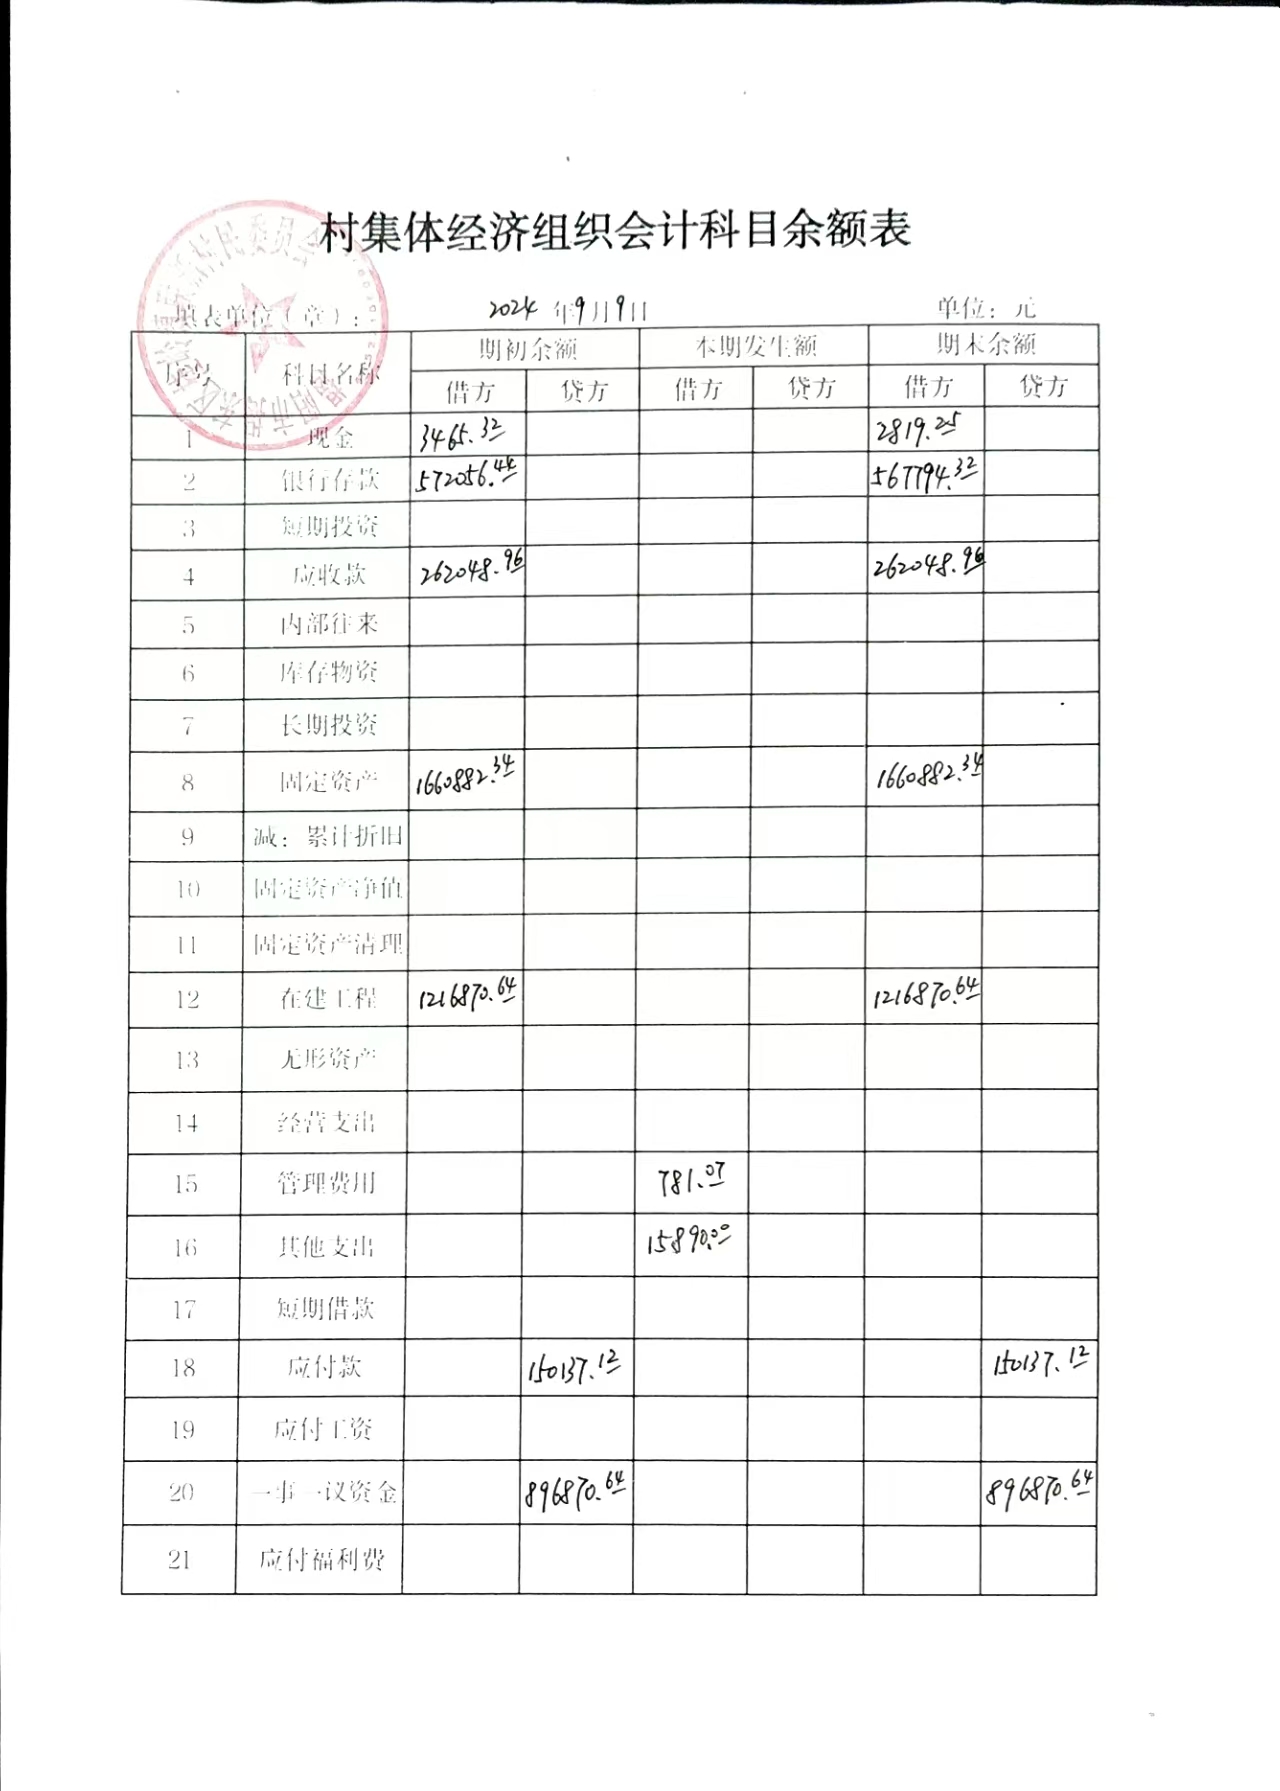 村集体经济组织会计科目余额表
填表单位（章）： 2024 年9月9日 单位：元
序号 科目名称 期初余额 本期发生额 期末余额
借方 贷方 借方 贷方 借方 贷方
1 现金 3465.32 2819.25
2 银行存款 572056.44 567794.32
3 短期投资
4 应收款 262048.96 262048.96
5 内部往来
6 库存物资
7 长期投资
8 固定资产 1660882.34 1660882.34
9 减：累计折旧
10 固定资产净值
11 固定资产清理
12 在建工程 1216870.64 1216870.64
13 无形资产
14 经营支出
15 管理费用 781.07
16 其他支出 15890.00
17 短期借款
18 应付款 150137.12 150137.12
19 应付工资
20 一事一议资金 896870.64 896870.64
21 应付福利费
村民委员会